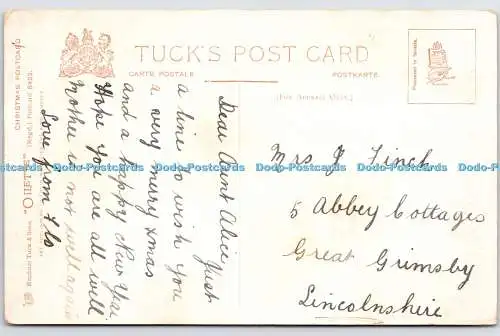 TUCK'S POST CARD
CARTE POSTALE
POSTKARTE
(For Address Only.)
CHRISTMAS POSTCARD
"OILETTE"
Raphael Tuck & Sons
Dear Aunt Alice Just
a line to wish you
a very merry xmas
and a happy New Year
Hope you are all well
Mother is not well again
Love from Flo
Mrs J Finch
5 Abbey Cottages
Great Grimsby
Lincolnshire
Dodo-Postcards Dodo-Postcards Dodo-Postcards Dodo-Postcards Dodo-Postcards Dodo-Postcards